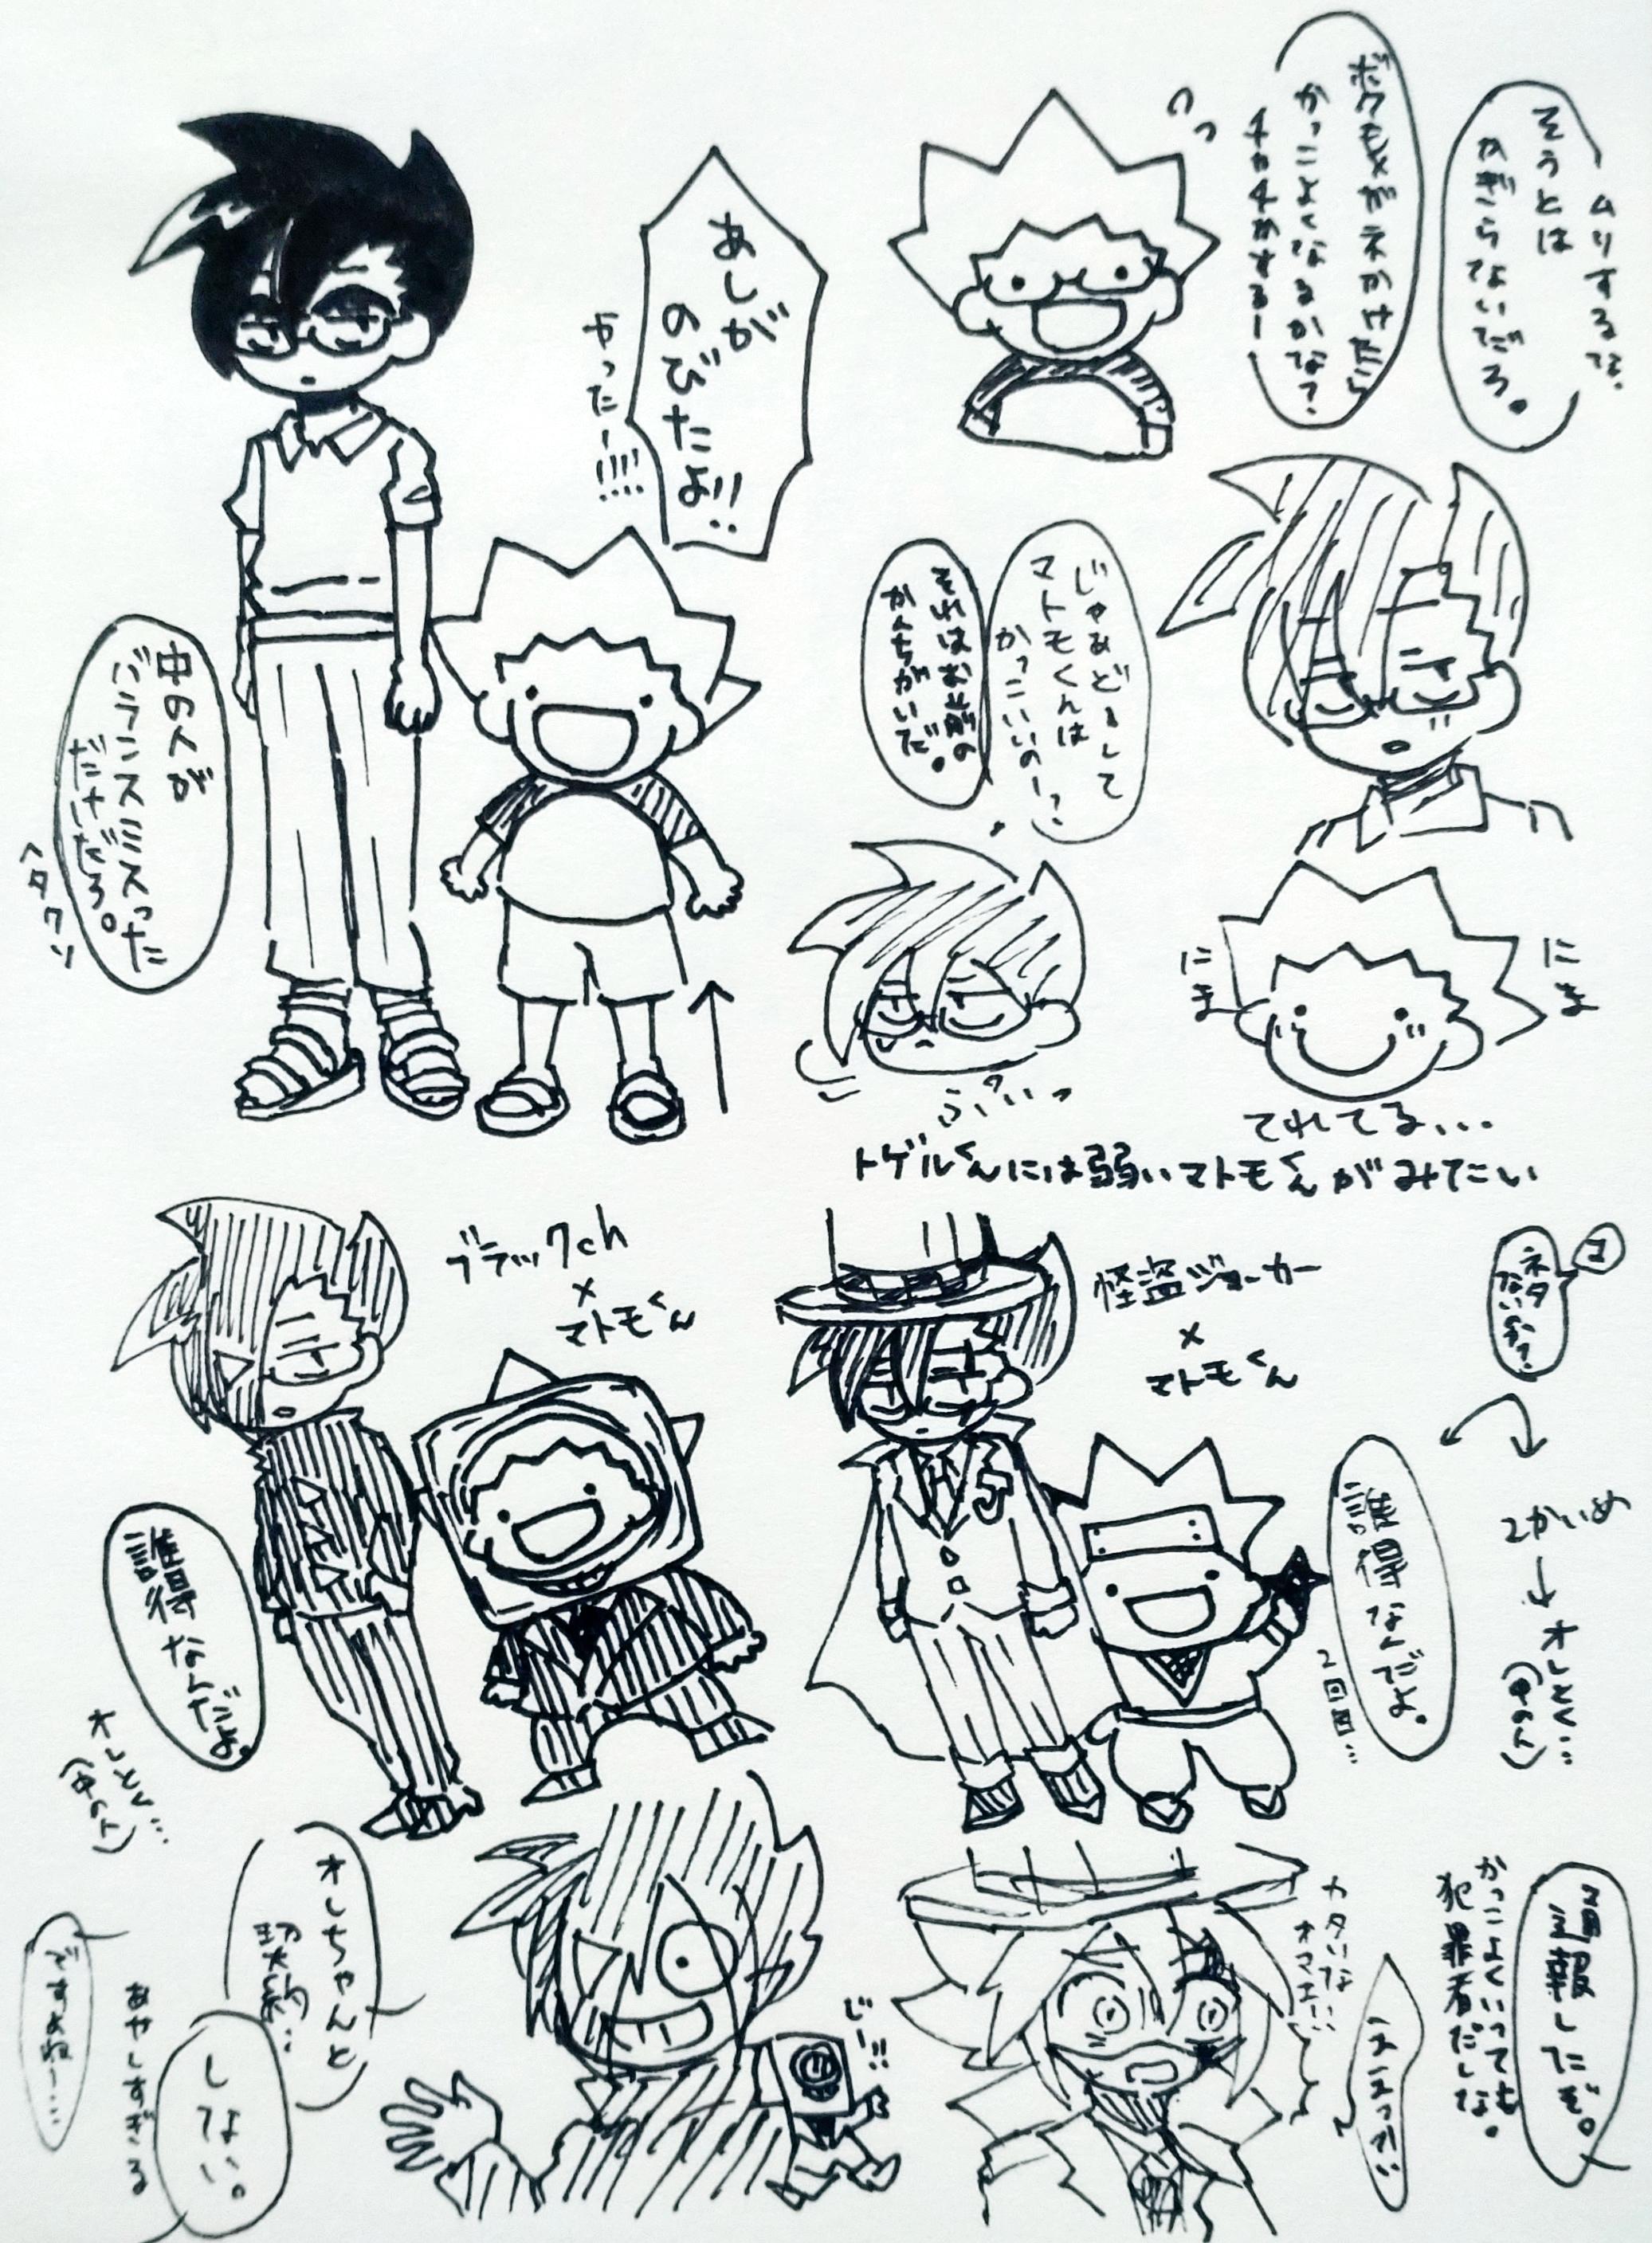 ムリするな。
そうとは
かぎらないだろ。
ボクもメガネかけたら
かっこよくなるかな？
チカチカするー
あしが
のびたよ!!
やったー!!!!
中の人が
バランスミスった
だけだろ。
ヘタクソ
じゃあどーして
マトモくんは
かっこいいのー？
それはお前の
かんちがいだ。
ぷいっ
にま
にま
てれてる...
トゲルくんには弱いマトモくんがみてたい
ブラックch
×
マトモくん
誰得なんだよ。
オレとく...
(中の人)
怪盗ジョーカー
×
マトモくん
マ
ネタ
ないのか？
誰得なんだよ。
2回目...
2かいめ
オレとく...
(中の人)
オレちゃんと
しない。
あやしすぎる
ですよねー...
じー!!
カタいな
オマエ...
通報したぞ。
かっこよくいっても
犯罪者だしな。